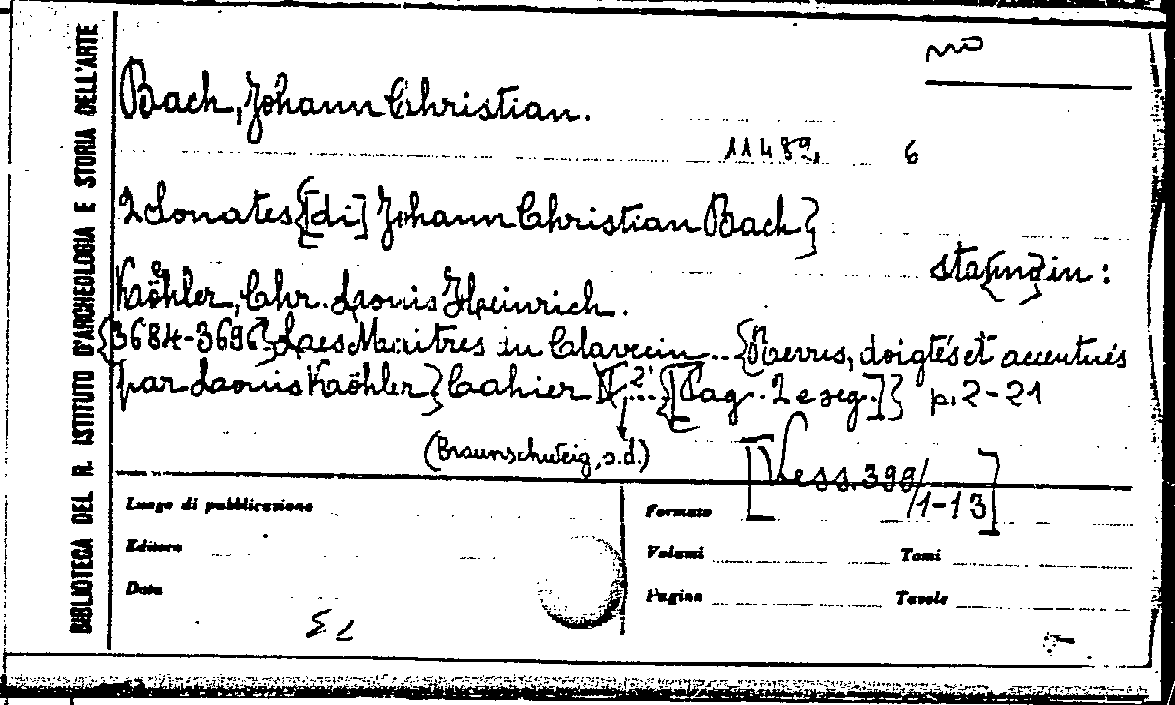 BIBLIOTECA DEL R. ISTITUTO D'ARCHEOLOGIA E STORIA DELL'ARTE
Bach, Johann Christian.
11489 6
2 Sonates {[di] Johann Christian Bach}
sta{mp} in:
Köhler, Chr. Louis Heinrich.
{3684-3696} Les Maitres du Clavecin... {Revus, doigtés et accentués
par Louis Köhler} Cahier ... {[Pag. 2 e seg.]} p. 2-21
(Braunschweig, s.d.)
[Vess. 399/1-13]
Luogo di pubblicazione
Formato
Editore
Volumi Tomi
Data
Pagine Tavole